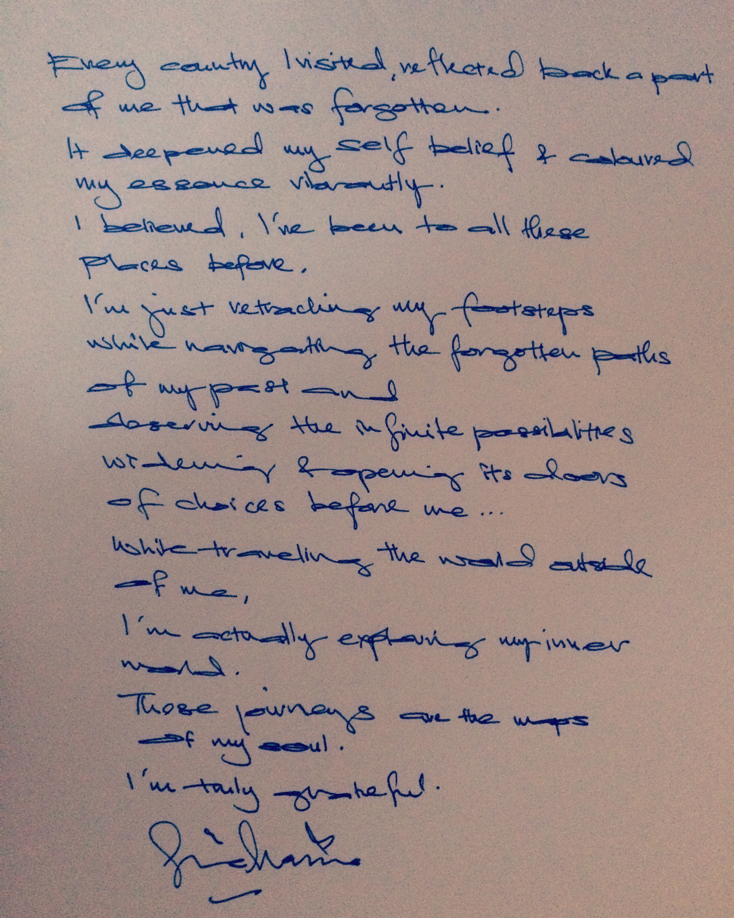 Every country I visited, reflected back a part
of me that was forgotten.
It deepened my self belief & coloured
my essence vibrantly.
I believed, I've been to all these
places before.
I'm just retracing my footsteps
while navigating the forgotten paths
of my past and
observing the infinite possibilities
widening & opening its doors
of choices before me...
While traveling the world outside
of me,
I'm actually exploring my inner
world.
Those journeys are the maps
of my soul.
I'm truly grateful.